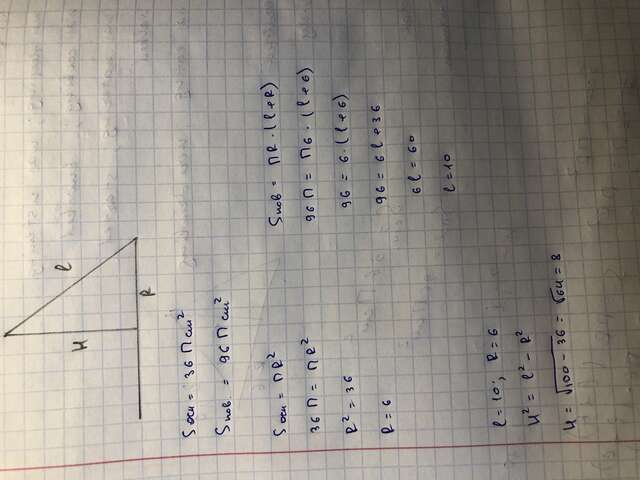 H
l
R
Sосн = 36 П см²
Sпов = 96 П см²
Sосн = ПR²
36 П = ПR²
R² = 36
R = 6
Sпов = ПR · (l + R)
96 П = П6 · (l + 6)
96 = 6 · (l + 6)
96 = 6l + 36
6l = 60
l = 10
l = 10; R = 6
H² = l² - R²
H = √100 - 36 = √64 = 8